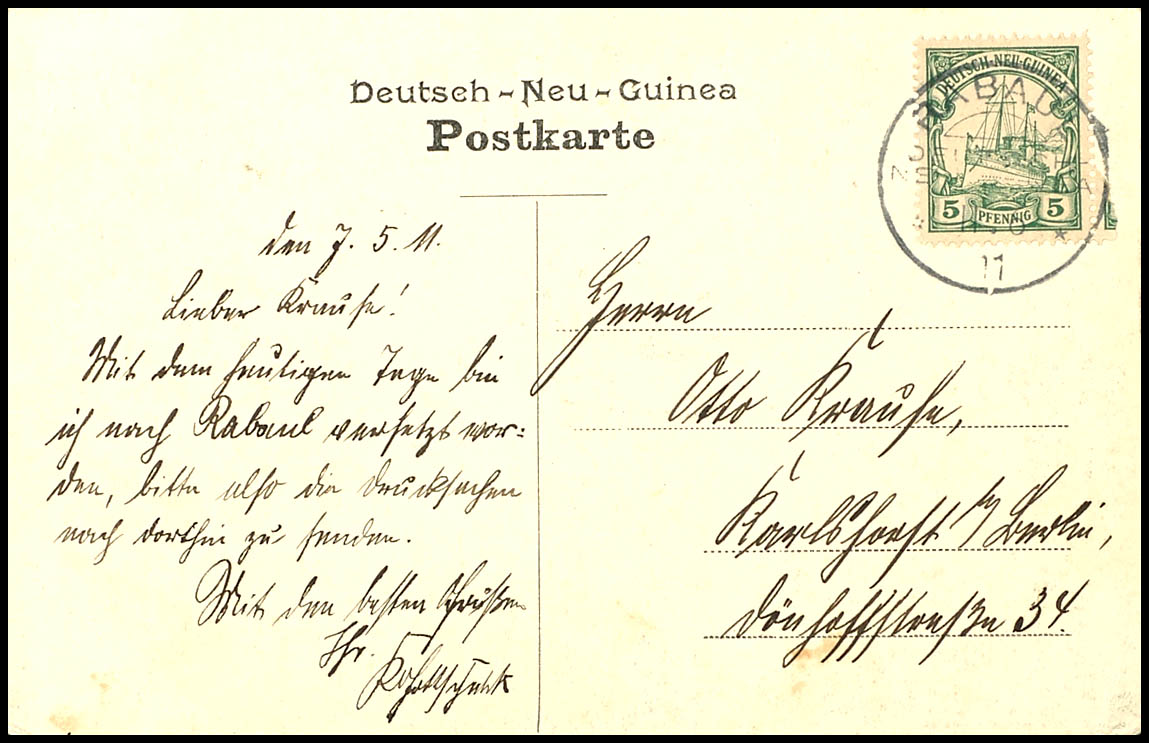 Deutsch-Neu-Guinea
Postkarte
DEUTSCH-NEU-GUINEA
5 PFENNIG 5
RABAUL
11
den 7. 5. 11.
Lieber Krause!
Mit dem heutigen Tage bin
ich nach Rabaul versetzt wor=
den, bitte also die Drucksachen
nach dorthin zu senden.
Mit den besten Grüßen
Ihr
Herrn
Otto Krause,
Karlshorst b/ Berlin,
Dönhoffstraße 34.